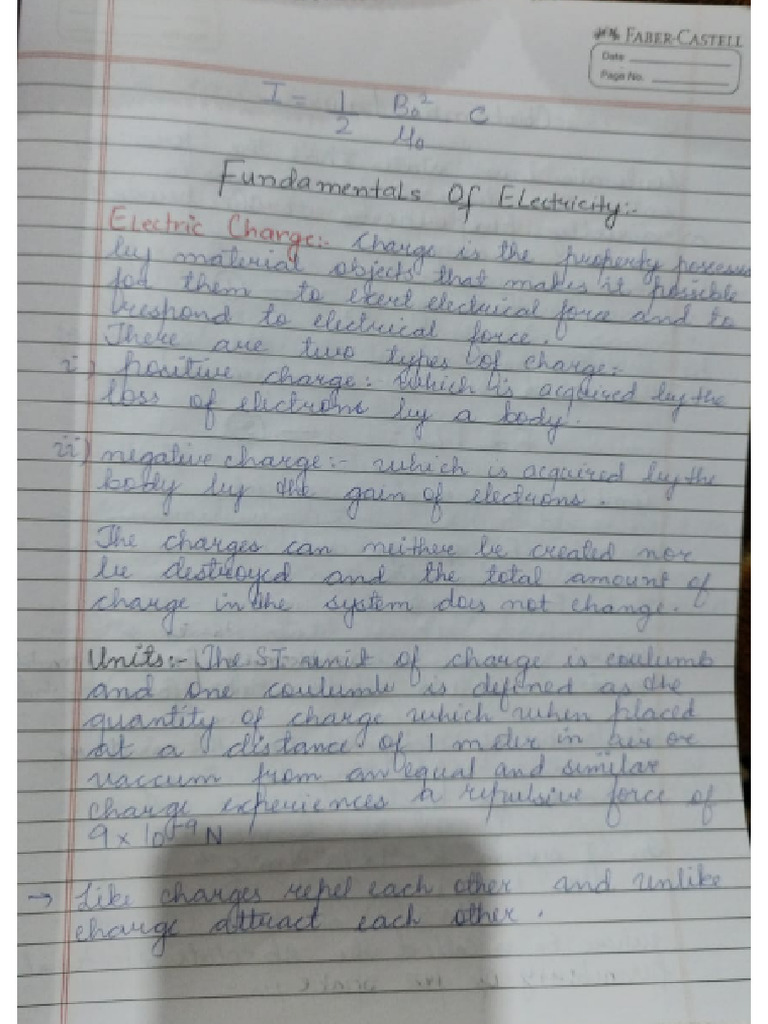 FABER-CASTELL
Date
Page No.
I = 1/2 B₀²/μ₀ C
Fundamentals Of Electricity:-
Electric Charge:- Charge is the property possess
by material objects that makes it possible
for them to exert electrical force and to
respond to electrical force.
There are two types of charge:-
i) positive charge:- which is acquired by the
loss of electrons by a body.
ii) negative charge:- which is acquired by the
body by the gain of electrons.
The charges can neither be created nor
be destroyed and the total amount of
charge in the system does not change.
Units:- The SI unit of charge is coulumb
and one coulumb is defined as the
quantity of charge which when placed
at a distance of 1 meter in air or
vaccum from an equal and similar
charge experiences a repulsive force of
9 x 10⁻⁹ N
→ Like charges repel each other and unlike
charge attract each other.